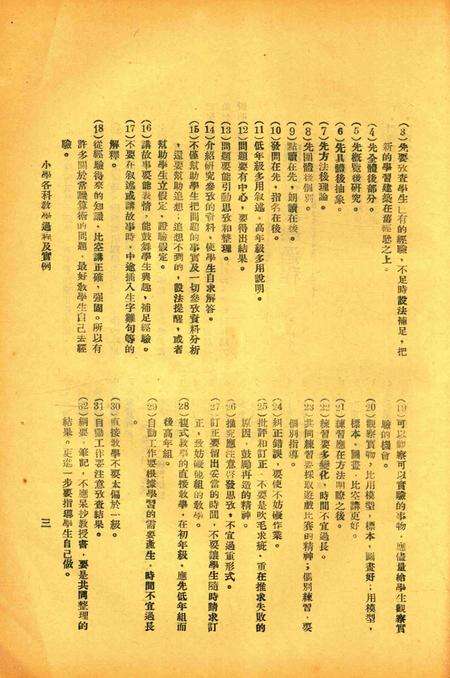 （3）先要考查學生已有的經驗，不足時設法補足，把
新的學習建築在舊經驗之上。
（4）先全體後部分。
（5）先概覽後研究。
（6）先具體後抽象。
（7）先方法後理論。
（8）先團體後個別。
（9）點讀在先，朗讀在後。
（10）發問在先，指名在後。
（11）低年級多用叙述，高年級多用說明。
（12）問題要有中心，要得出結果。
（13）問題要能引動思攷和整理。
（14）介紹研究參攷的資料，使學生自求解答。
（15）不僅幫助學生把問題的事實及一切參攷資料分析
，還要幫助追想；追想不到的，設法提醒，或者
幫助學生立假定，證驗假定。
（16）講故事要能表情，能鼓舞學生興趣，補足經驗。
（17）不要在叙述或講故事時，中途插入生字難句等的
解釋。
（18）從經驗得來的知識，比空講正確，強固。所以有
許多關於常識算術的問題，最好敎學生自己去經
驗。
小學各科敎學過程及實例
（19）可以觀察可以實驗的事物，應儘量給學生觀察實
驗的機會。
（20）觀察實物，比用模型，標本，圖畫好；用模型，
標本，圖畫，比空講更好。
（21）練習應在方法明瞭之後。
（22）練習要多變化，時間不宜過長。
（23）共同練習要採取遊戲比賽的精神；個別練習，要
個別指導。
（24）糾正錯誤，要使不妨礙作業。
（25）批評和訂正，不要是吹毛求疵，重在推求失敗的
原因，鼓勵再造的精神。
（26）推究應注意啓發思攷，不宜過重形式。
（27）訂正要留出妥當的時間，不要讓學生隨時請求訂
正，致妨礙他組的敎學。
（28）複式敎學的直接敎學，在初年級，應先低年組而
後高年組。
（29）自動工作要根據學習的需要產生，時間不宜過長
。
（30）直接敎學不要太偏於一級。
（31）自動工作要注意攷查結果。
（32）綱要，筆記，不應呆抄敎授書，要是共同整理的
結果。更進一步要指導學生自己做。
三